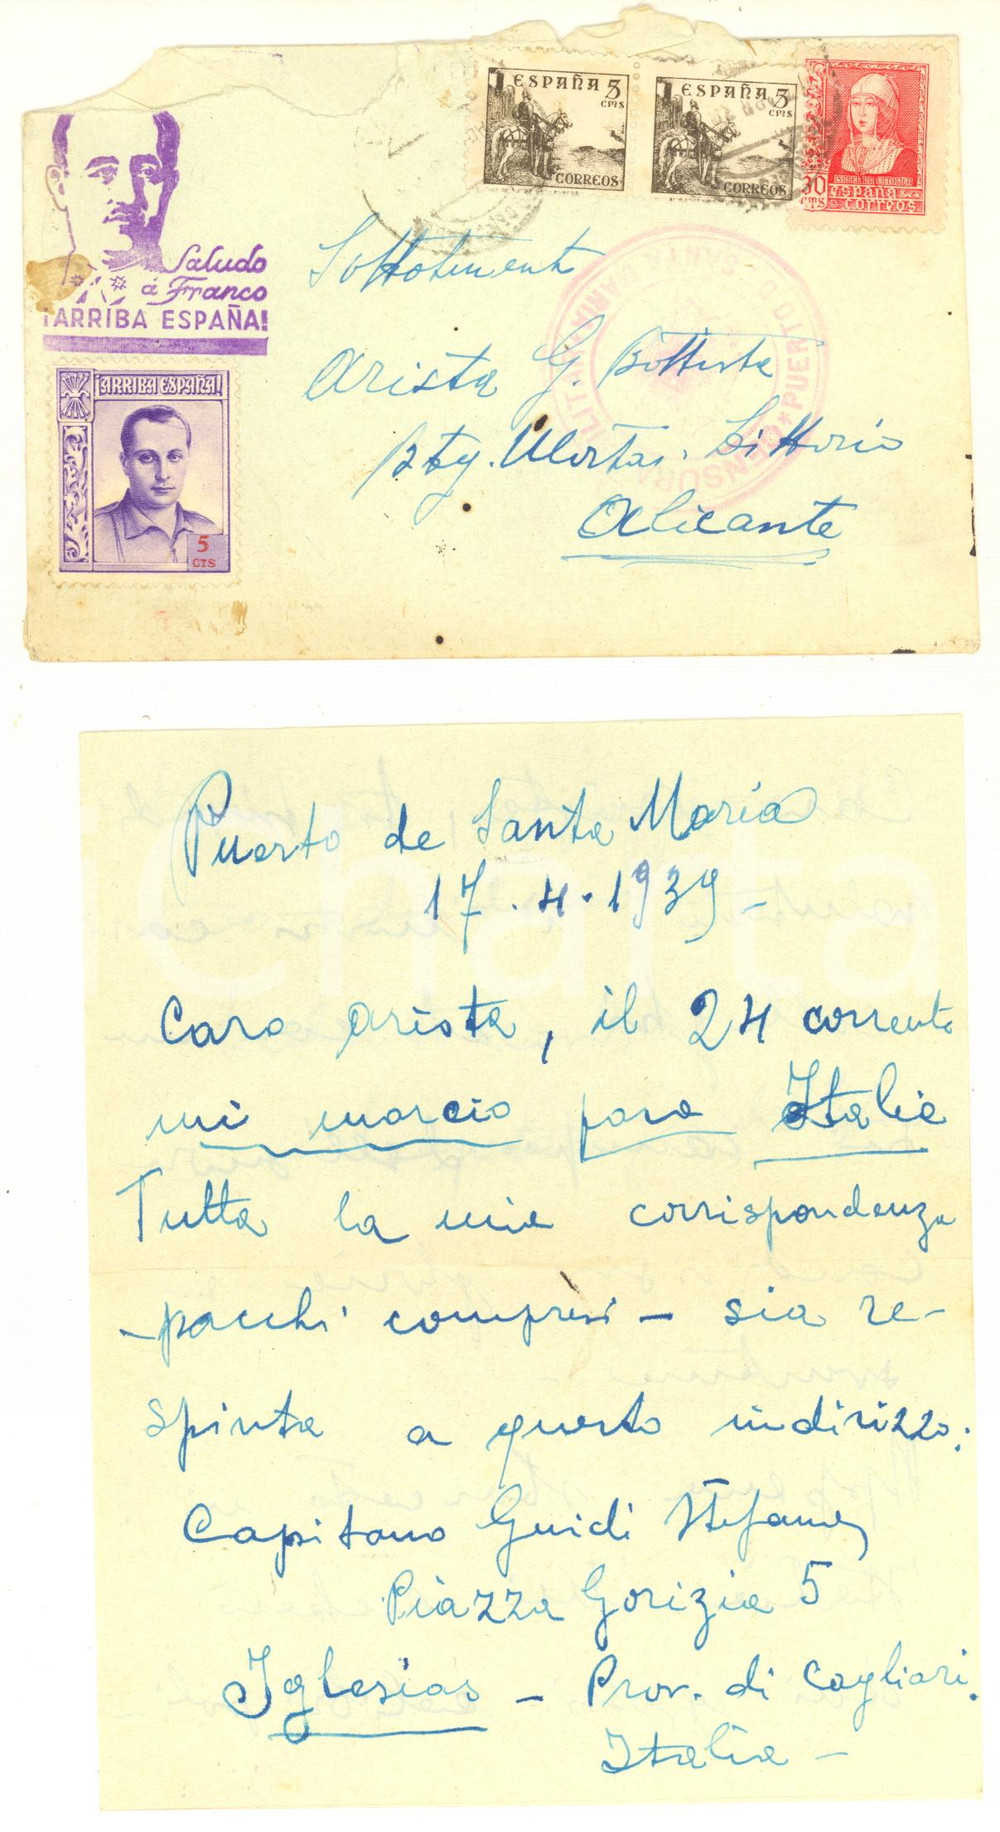 ESPAÑA 5
CMS
CORREOS
ESPAÑA 5
CMS
CORREOS
30
CTS
ISABEL LA CATOLICA
ESPAÑA
CORREOS
Saludo
á Franco
¡ARRIBA ESPAÑA!
¡ARRIBA ESPAÑA!
5
CTS
CENSURA MILITAR * PUERTO DE SANTA MARIA
Sottotenente
Arista G. Battista
Littorio
Alicante
Puerto de Santa Maria
17.4.1939 -
Caro Arista, il 24 corrente
mi marcio para Italia
Tutta la mia corrispondenza
- pacchi compresi - sia re-
spinta a questo indirizzo:
Capitano Guidi Stefano
Piazza Gorizia 5
Iglesias - Prov. di Cagliari.
Italia -
Charta